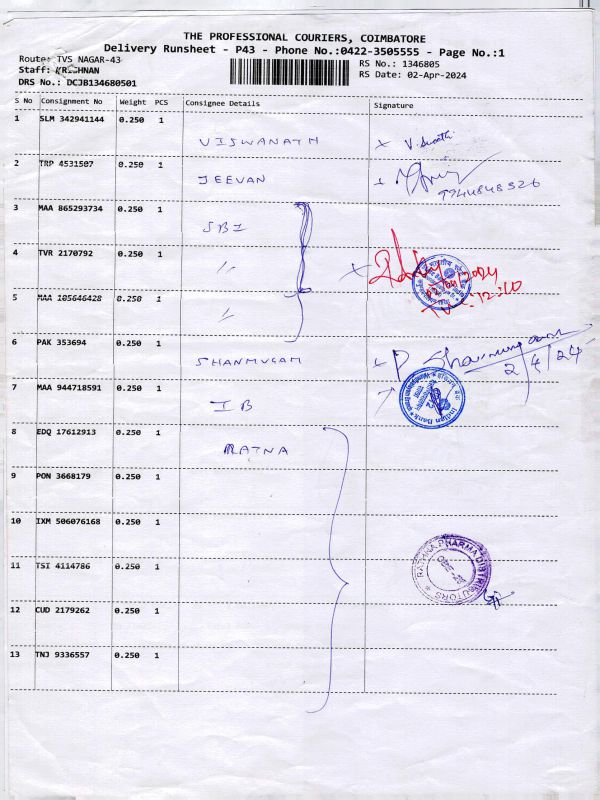 THE PROFESSIONAL COURIERS, COIMBATORE
Delivery Runsheet - P43 - Phone No.:0422-3505555 - Page No.:1
Route: TVS NAGAR-43
RS No.: 1346805
Staff: KRISHNAN
RS Date: 02-Apr-2024
DRS No.: DCJB134680501
S No Consignment No Weight PCS Consignee Details Signature
1 SLM 342941144 0.250 1
VISWANATH x
2 TRP 4531507 0.250 1
JEEVAN
9944848326
3 MAA 865293734 0.250 1
SBI
4 TVR 2170792 0.250 1
〃 x
12:10
5 MAA 105646428 0.250 1
〃
6 PAK 353694 0.250 1
SHANMUGAM P Shanmugam
2/4/24
7 MAA 944718591 0.250 1
IB
Indian Bank
8 EDQ 17612913 0.250 1
RATNA
9 PON 3668179 0.250 1
10 IXM 506076168 0.250 1
11 TSI 4114786 0.250 1
RATHNA PHARMA DISTRIBUTORS
12 CUD 2179262 0.250 1
13 TNJ 9336557 0.250 1